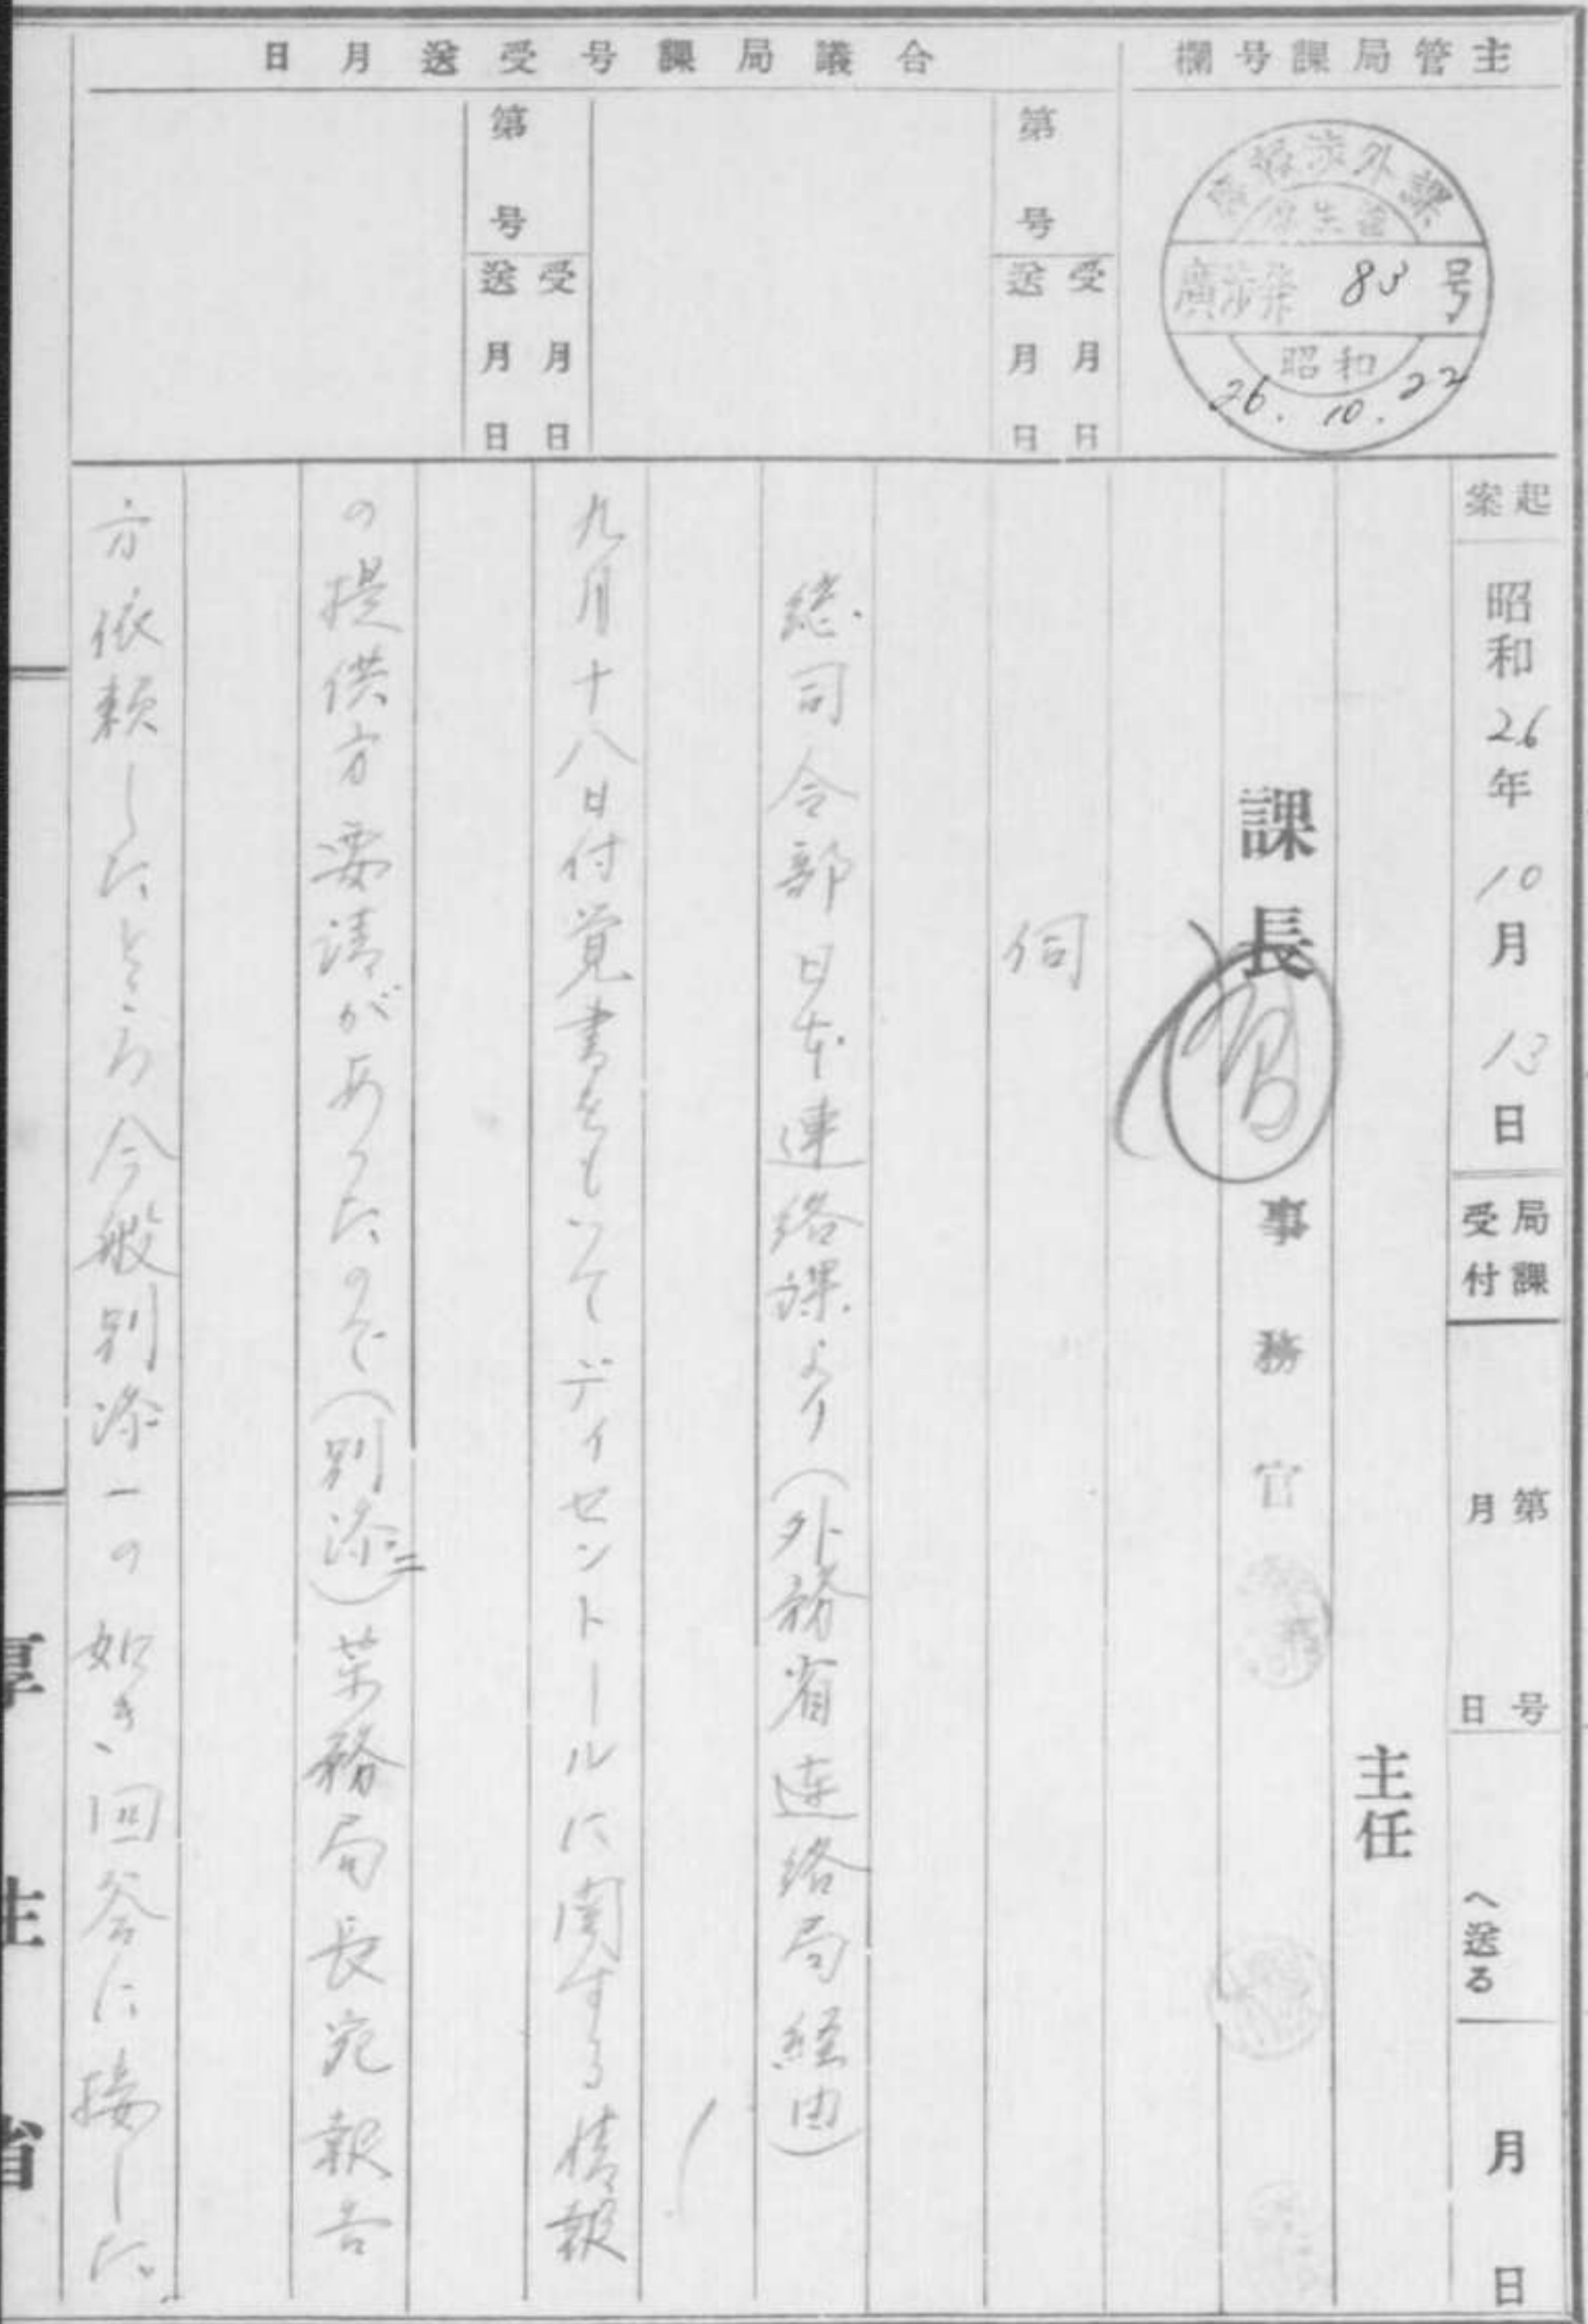 主管局課号欄
合議局課号受送月日
廣報渉外課
厚生省
廣渉発 83 号
昭和
26. 10. 22
第 号
受 月 日
送 月 日
第 号
受 月 日
送 月 日
起案
昭和26年10月13日
局課受付
第 号
月 日
へ送る
月 日
主任
課長
事務官
伺
総司令部日本連絡課より(外務省連絡局経由)
九月十八日付覚書をもつてディセントールに関する情報
の提供方要請があつたので(別添二)薬務局長宛報告
方依頼したところ今般別添一の如き回答に接した。
厚生省